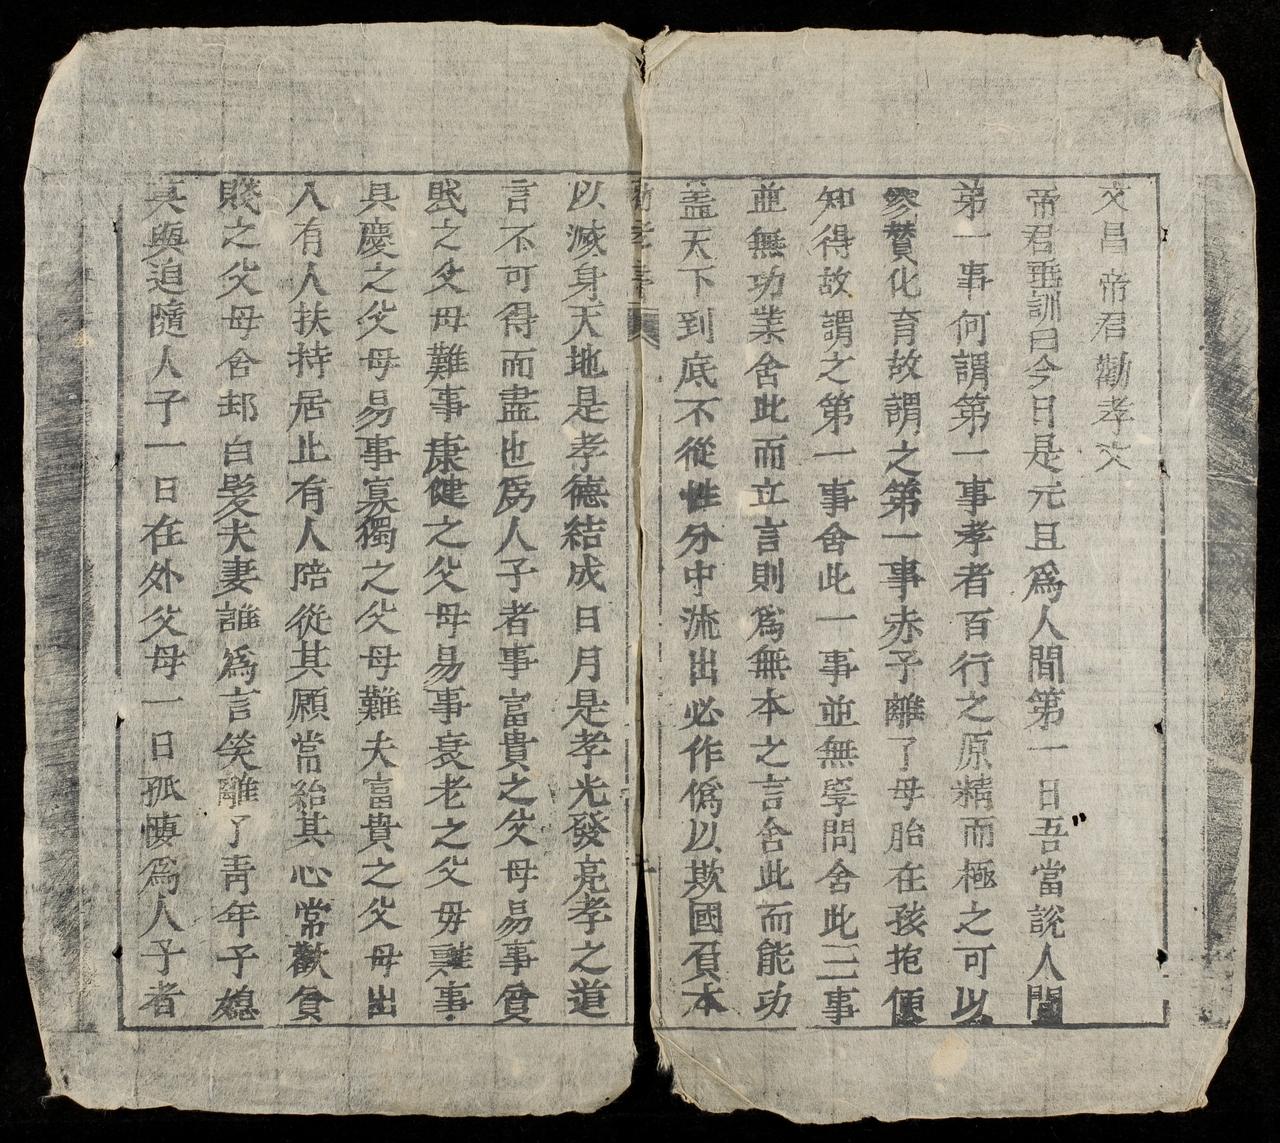 文昌帝君勸孝文
帝君垂訓曰今日是元旦爲人間第一日吾當說人間
第一事何謂第一事孝者百行之原精而極之可以
參賛化育故謂之第一事赤子離了母胎在孩抱便
知得故謂之第一事舍此一事並無學問舍此三事
並無功業舍此而立言則爲無本之言舍此而能功
盖天下到底不從性分中流出必作僞以欺國負本
勸孝章
以滅身天地是孝德結成日月是孝光發亮孝之道
言不可得而盡也爲人子者事富貴之父母易事貧
賤之父母難事康健之父母易事衰老之父母難事
具慶之父母易事寡獨之父母難夫富貴之父母出
入有人扶持居止有人陪從其願常給其心常歡貧
賤之父母舍却白髮夫妻誰爲言笑離了青年子媳
真與追隨人子一日在外父母一日孤悽爲人子者